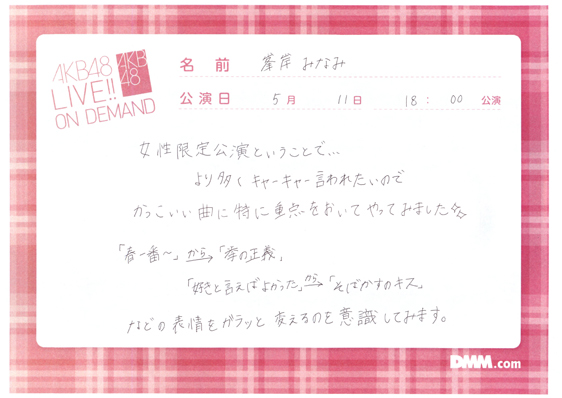 AKB48
LIVE!!
ON DEMAND
AKB
48
名前 峯岸みなみ
公演日 5月 11日 18:00 公演
女性限定公演ということで…
より多くキャーキャー言われたいので
かっこいい曲に特に重点をおいてやってみました☆
「春一番〜」から→「拳の正義」
「好きと言えばよかった」から→「そばかすのキス」
などの表情をガラッと変えるのを意識してみます。
DMM.com